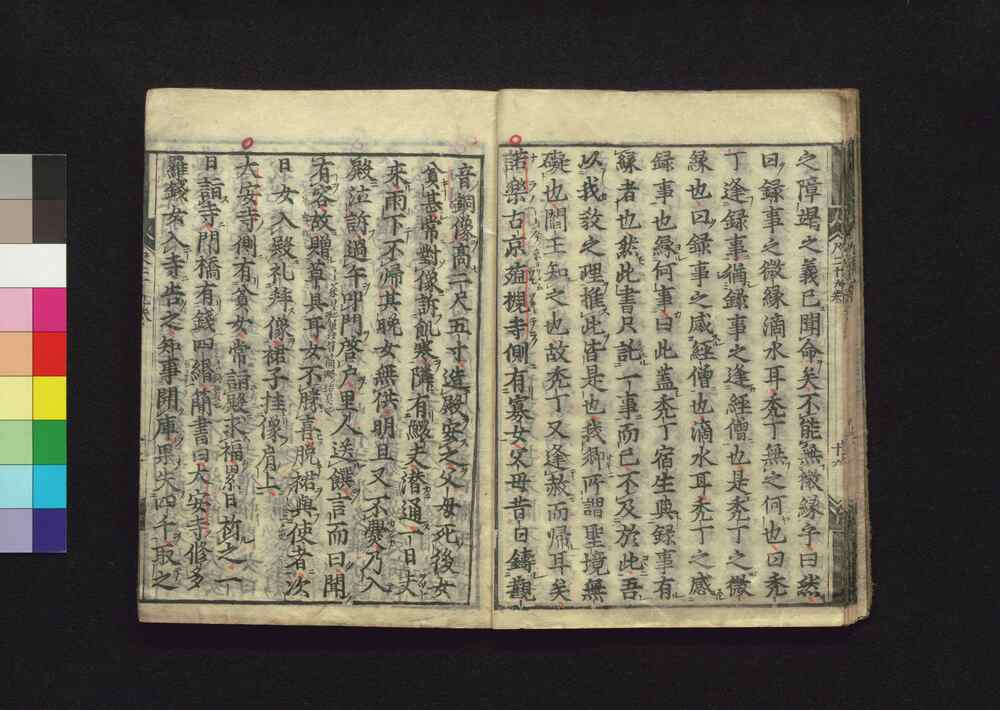 之障竭之義已聞命矣不能無微縁乎曰然
曰録事之微縁滴水耳禿丁無之何也曰禿
丁逢録事猶録事之逢經僧也是禿丁之微
縁也曰録事之感經僧也滴水耳禿丁之感
録事也縁何事曰此蓋禿丁宿生與録事有
縁者也然此書只記一事而已不及於此吾
以我教之理推此皆是也我卿所謂聖境無
礙也閻王知之也故禿丁又逢赦而帰耳矣
諾樂古京殖槻寺側有寡女父母昔日鑄觀
音銅像髙二尺五寸造殿安之父母死後女
貧甚常對像訴飢寒隣有鰥夫潜通一日夫
來雨下不帰其晩女無供明旦又不爨乃入
殿泣訴過午叩門啓戸里人送饌言而曰聞
有客故贈尊具耳女不勝喜脱裙與使者次
日女入殿礼拜像裙子挂像肩上
大安寺側有貧女常詣殿求福累日祈之一
日詣寺門橋有錢四緡簡書曰大安寺修多
羅錢女入寺告之知事開庫果失四千取之